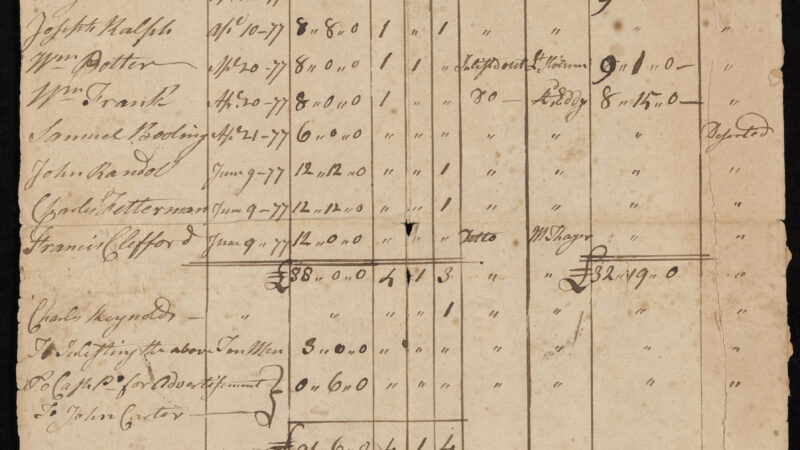 9
Joseph Ralph Apl 10-77 8 " 8 " 0 1 " 1 " " " "
Wm Potter Apl 20-77 8 " 0 " 0 1 1 " Inlistd out Lt 9 " 1 " 0 - "
Wm Frank Apl 20-77 8 " 0 " 0 1 " " Do - 8 " 15 " 0 - "
Samuel Booling Apl 21-77 6 " 0 " 0 " " " " " " Deserted
John Randol June 9-77 12 " 12 " 0 " " 1 " " " "
Charles Fetterman June 9-77 12 " 12 " 0 " " 1 " " " "
Francis Clifford June 9 " 77 12 " 0 " 0 " " " Ditto M Thayer " "
£88 " 0 " 0 4 1 3 " " £32 " 19 " 0 "
Charles Reynolds - " " " " 1 " " " "
To Inlisting the above Ten Men 3 " 0 " 0 " " " " " " "
To Cash Pd for Advertisement 0 " 6 " 0 " " " " " " "
To John Carter
£91 6 0 4 1 4